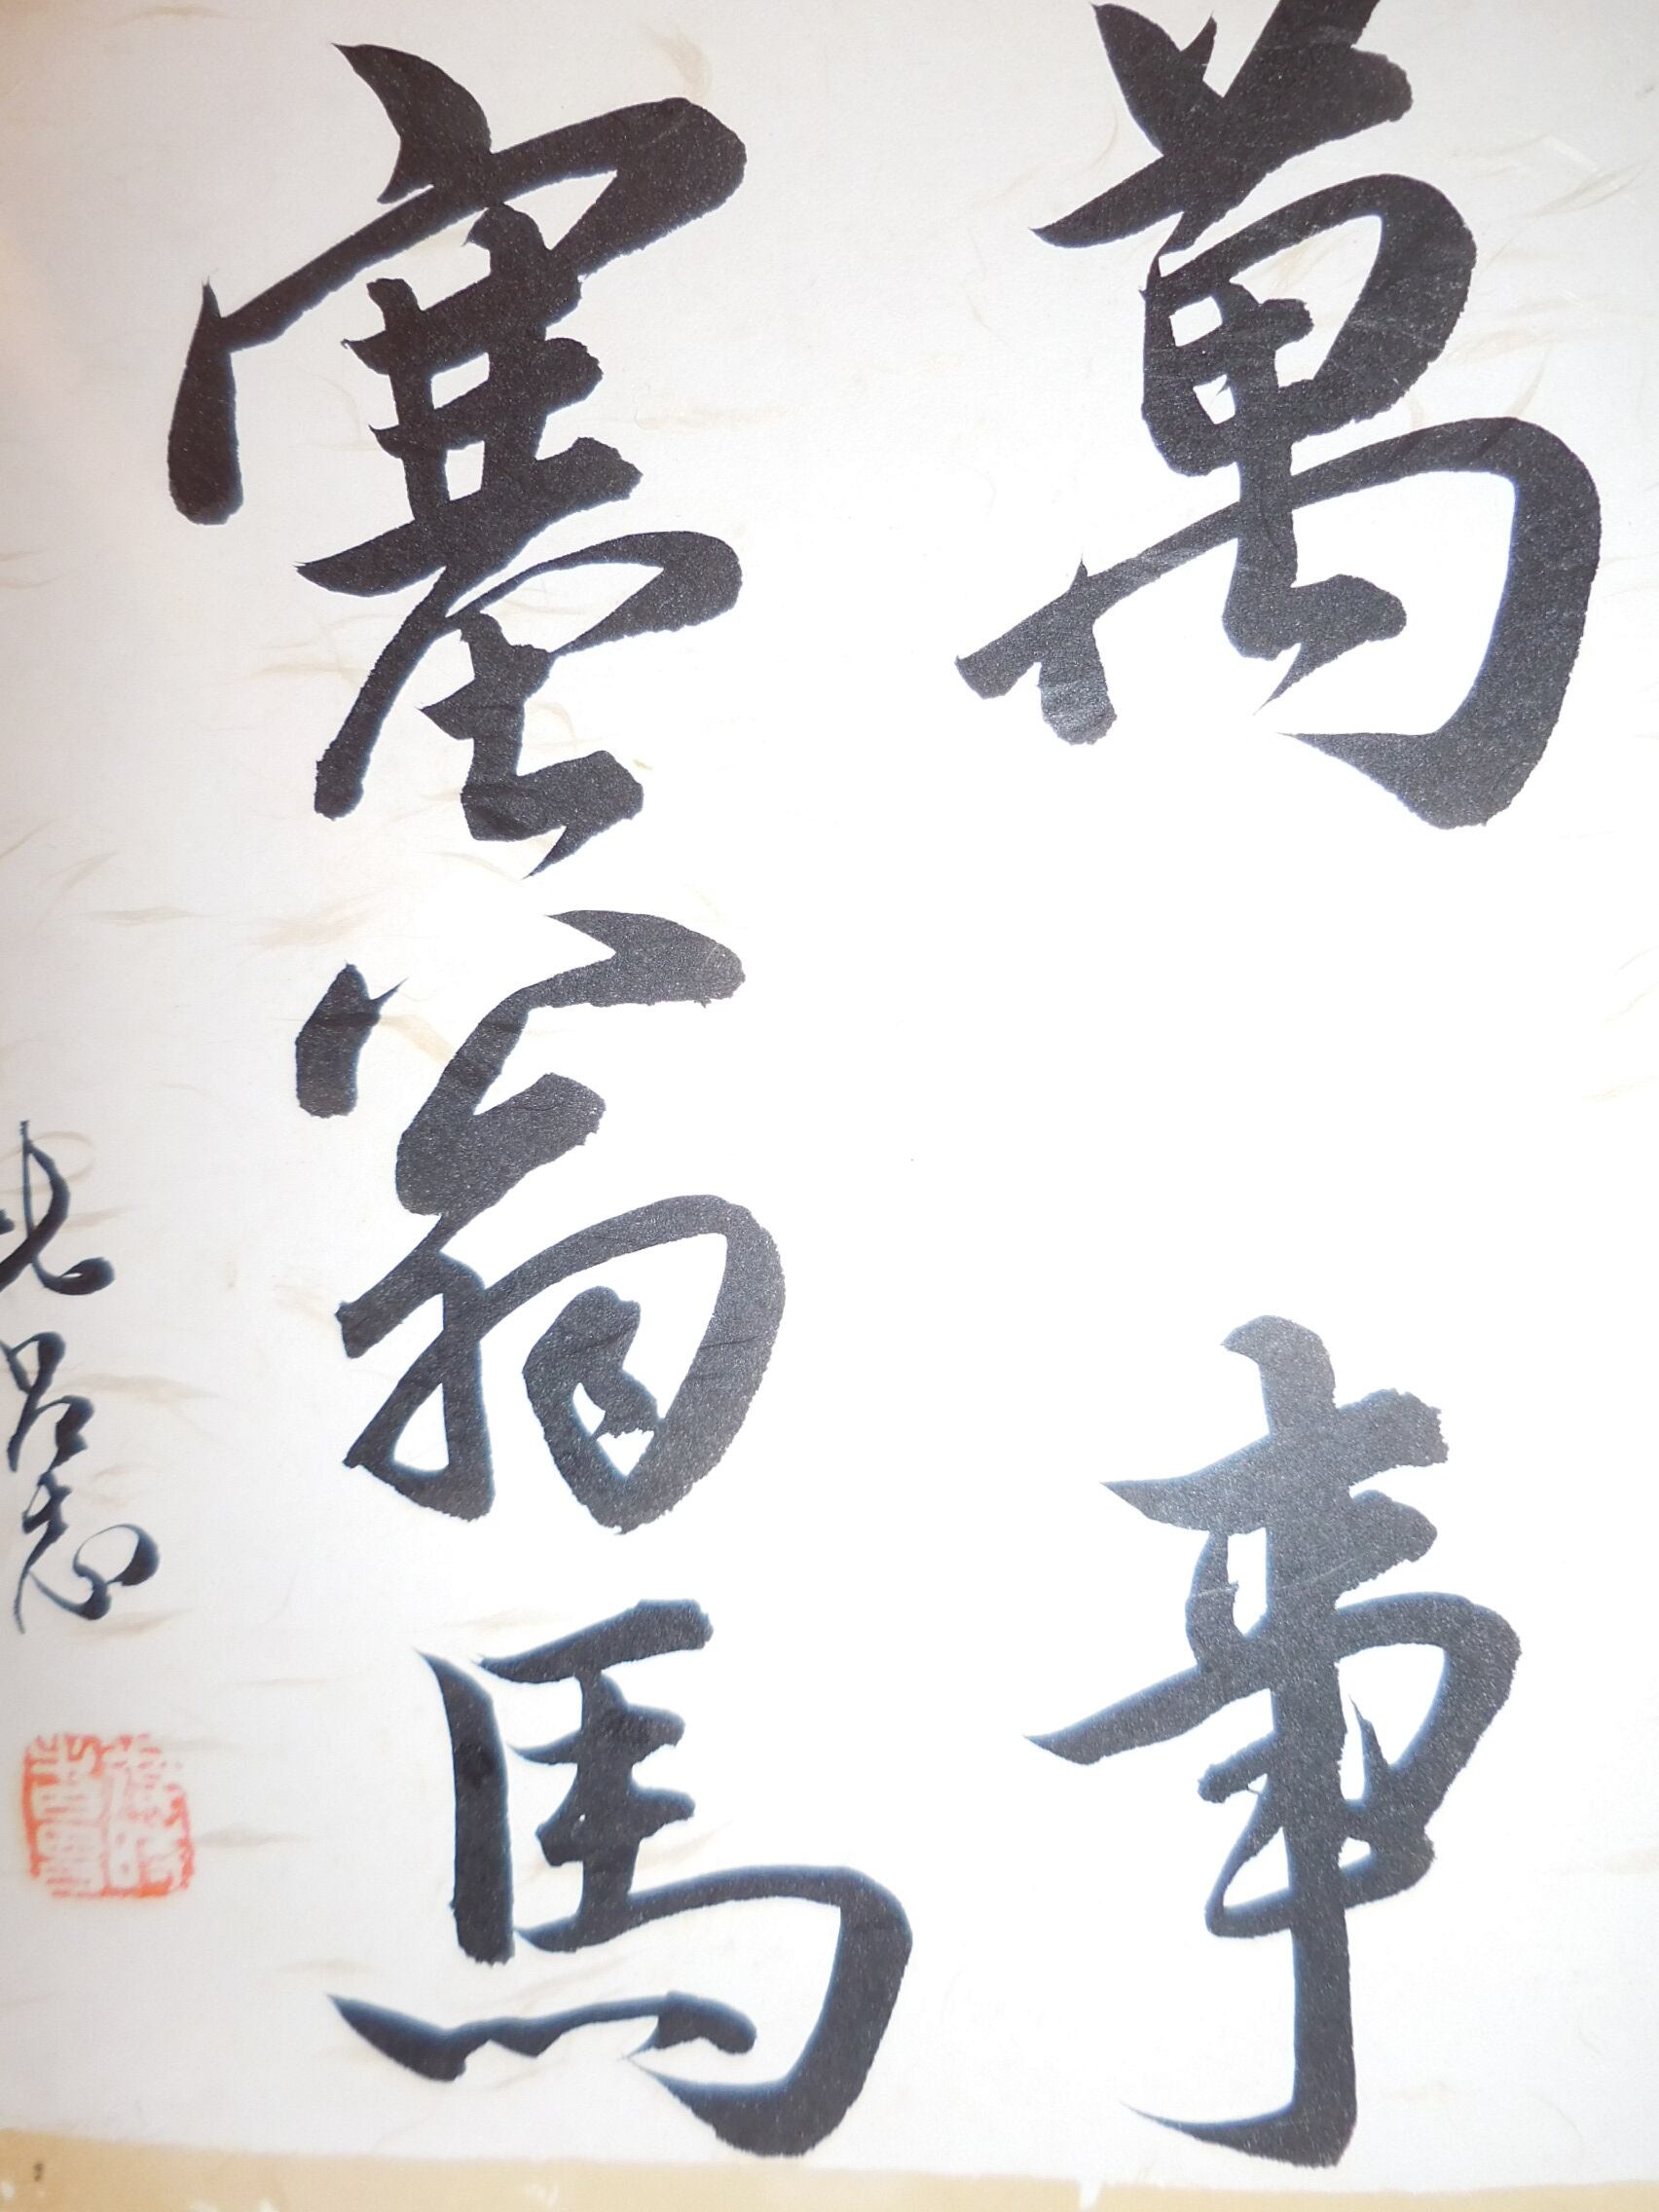 萬事
塞翁馬